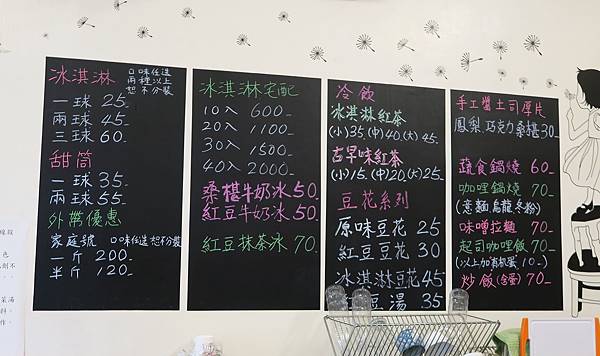 冰淇淋
口味任選
兩種以上
恕不分裝
一球 25
兩球 45
三球 60
甜筒
一球 35
兩球 55
外帶優惠
家庭號 口味任選 恕不分裝
一斤 200
半斤 120
冰淇淋宅配
10入 600
20入 1100
30入 1500
40入 2000
桑椹牛奶冰 50
紅豆牛奶冰 50
紅豆抹茶冰 70
冷飲
冰淇淋紅茶
(小)35(中)40(大)45
古早味紅茶
(小)15(中)20(大)25
豆花系列
原味豆花 25
紅豆豆花 30
冰淇淋豆花 45
豆湯 35
手工醬土司厚片
鳳梨 巧克力 桑椹 30
蔬食鍋燒 60
咖哩鍋燒 70
(意麵.烏龍.冬粉)
味噌拉麵 70
起司咖哩飯 70
(以上加有機蛋) 10
炒飯(含蛋) 70